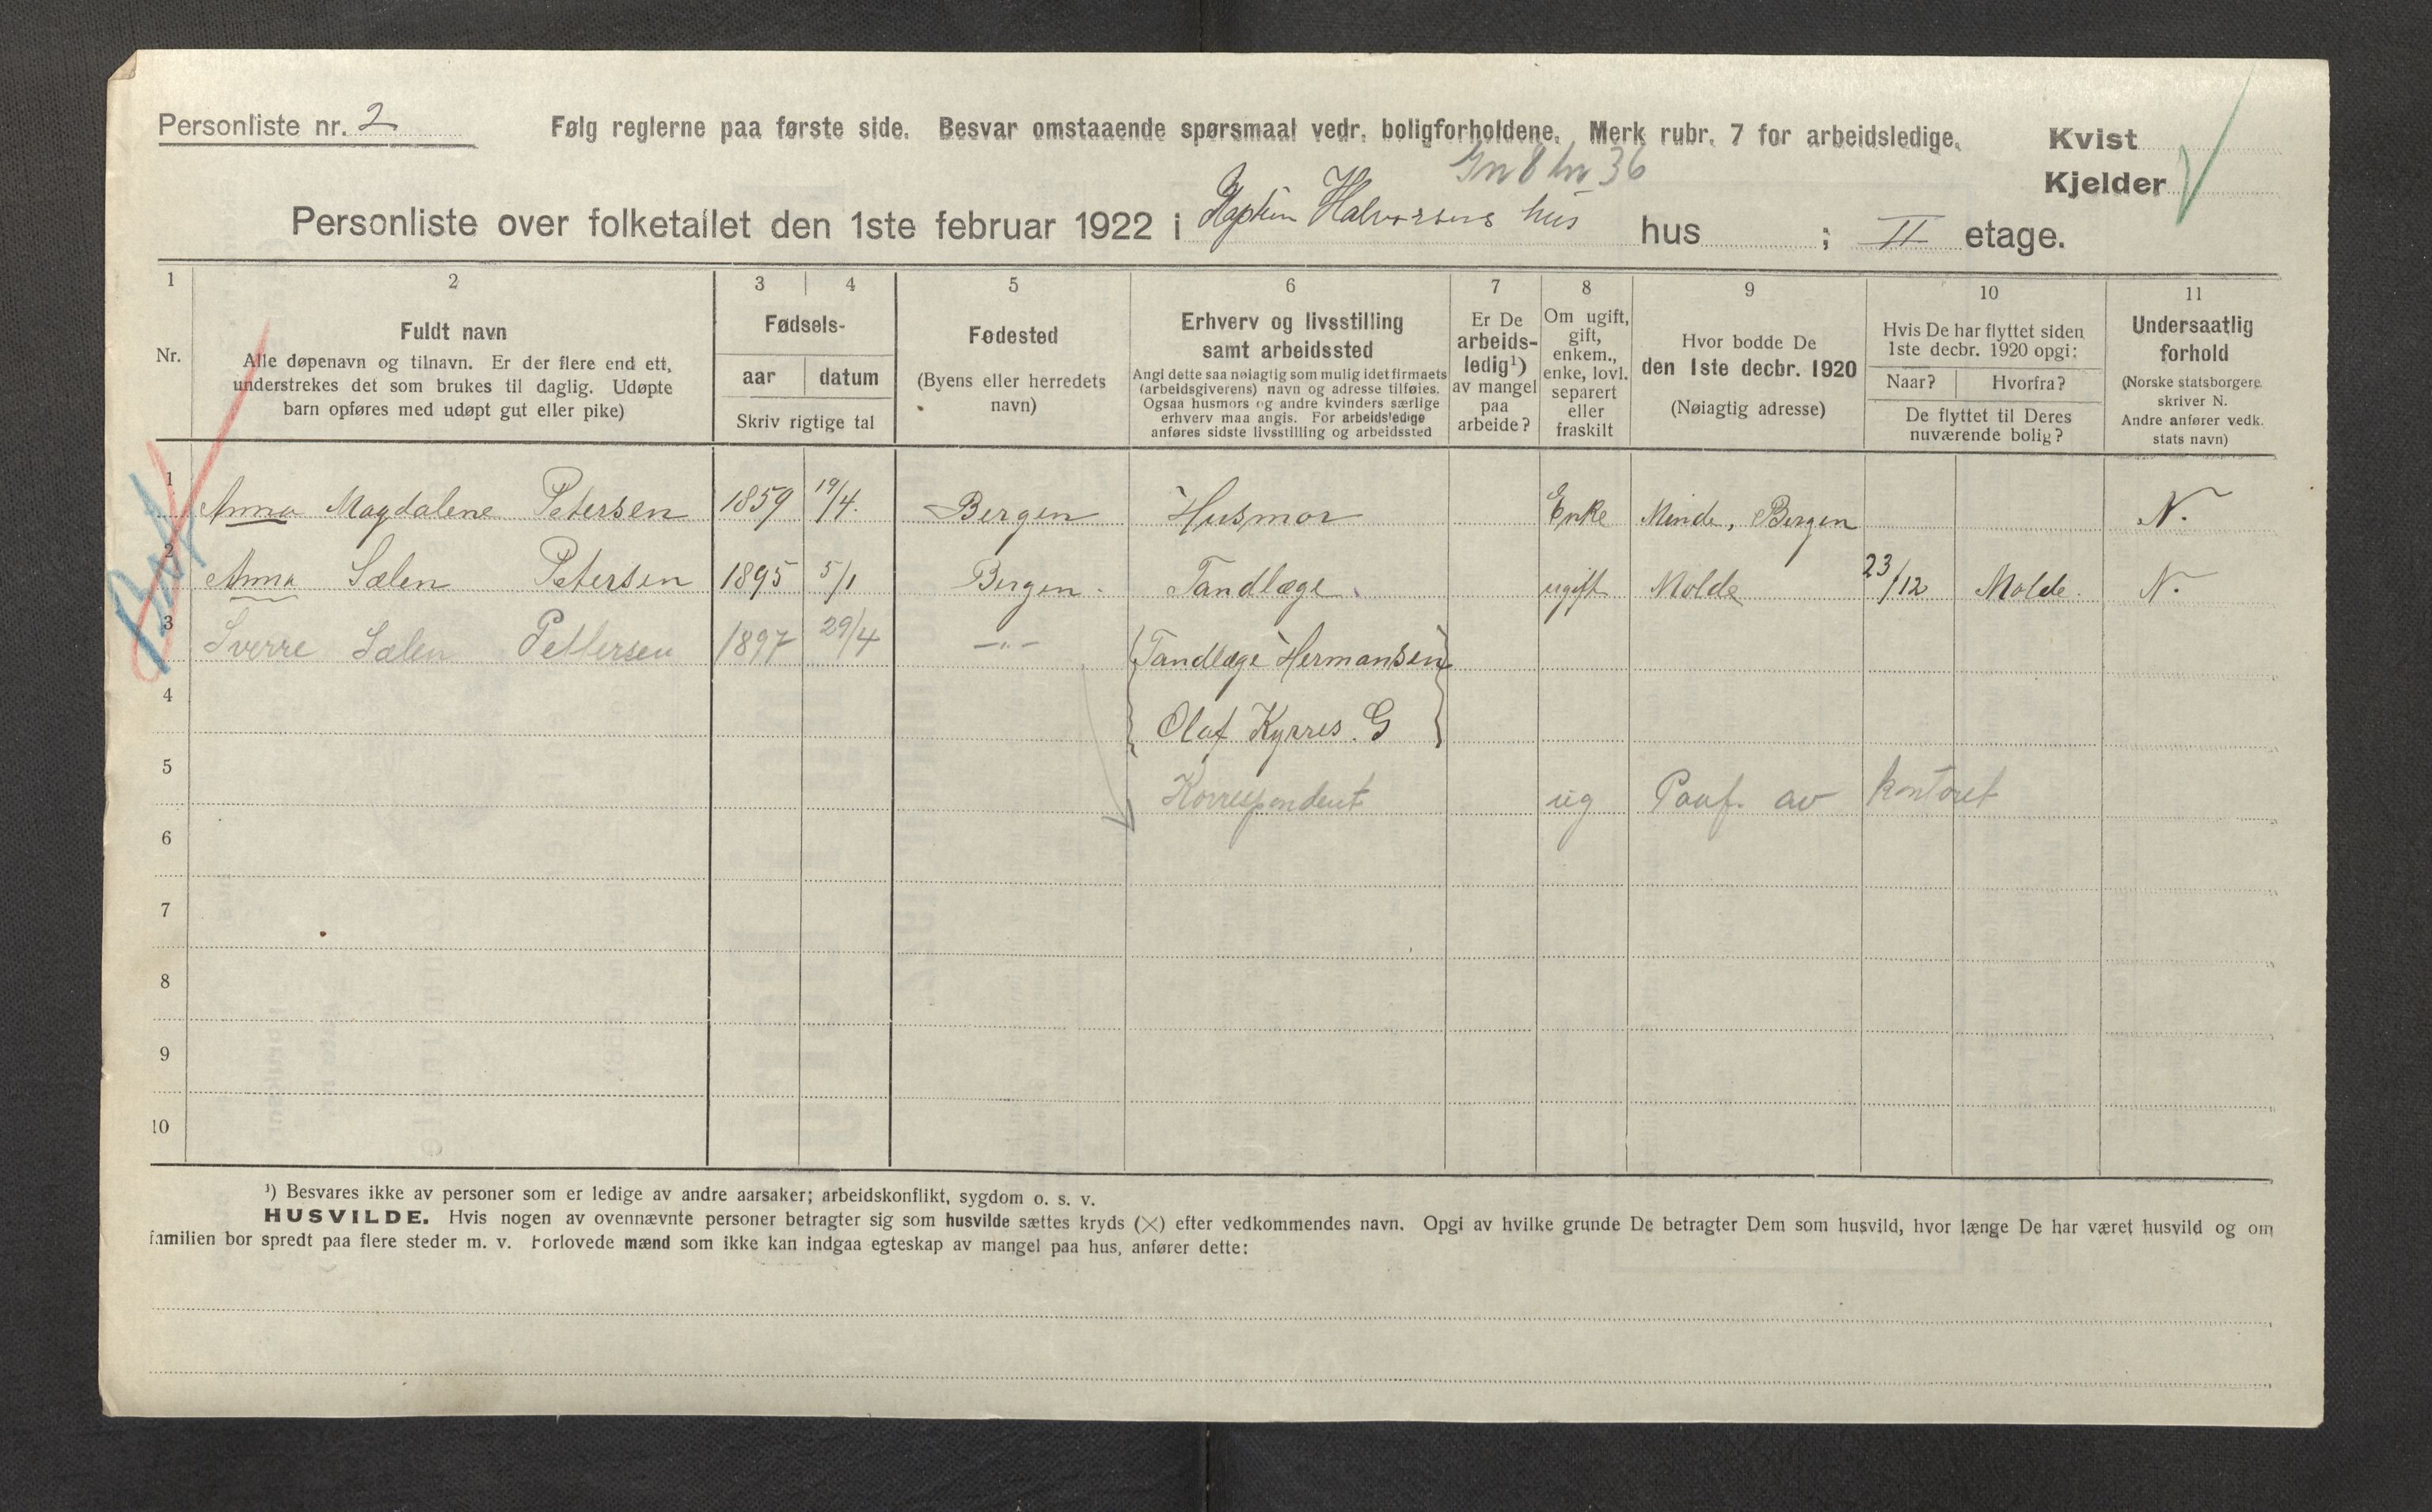 Personliste nr. 2 Følg reglerne paa første side. Besvar omstaaende spørsmaal vedr. boligforholdene. Merk rubr. 7 for arbeidsledige. Kvist
Kjelder
Gn 8 bn 36
Personliste over folketallet den 1ste februar 1922 i Kaptein Halvorsens hus hus ; II etage.
1 2 3 4 5 6 7 8 9 10 11
Nr.
Fuldt navn
Alle døpenavn og tilnavn. Er der flere end ett,
understrekes det som brukes til daglig. Udøpte
barn opføres med udøpt gut eller pike)
Fødsels-
aar datum
Skriv rigtige tal
Fødested
(Byens eller herredets
navn)
Erhverv og livsstilling
samt arbeidssted
Angi dette saa nøiagtig som mulig idet firmaets
(arbeidsgiverens) navn og adresse tilføies.
Ogsaa husmors og andre kvinders særlige
erhverv maa angis. For arbeidsledige
anføres sidste livsstilling og arbeidssted
Er De
arbeids-
ledig¹)
av mangel
paa
arbeide?
Om ugift,
gift,
enkem.,
enke, lovl.
separert
eller
fraskilt
Hvor bodde De
den 1ste decbr. 1920
(Nøiagtig adresse)
Hvis De har flyttet siden
1ste decbr. 1920 opgi:
Naar? Hvorfra?
De flyttet til Deres
nuværende bolig?
Undersaatlig
forhold
(Norske statsborgere
skriver N.
Andre anfører vedk.
stats navn)
1 Anna Magdalene Petersen 1859 19/4. Bergen Husmor Enke Minde, Bergen N.
2 Anna Sælen Petersen 1895 5/1 Bergen. Tandlæge. ugift Molde 23/12 Molde. N.
3 Sverre Sælen Pettersen 1897 29/4 —"— {Tandlæge Hermansen}
4 {Olaf Kyrres. G}
5 Korrespondent ug Paaf. av kontoret
6
7
8
9
10
¹) Besvares ikke av personer som er ledige av andre aarsaker; arbeidskonflikt, sygdom o. s. v.
HUSVILDE. Hvis nogen av ovennævnte personer betragter sig som husvilde sættes kryds (×) efter vedkommendes navn. Opgi av hvilke grunde De betragter Dem som husvild, hvor længe De har været husvild og om
familien bor spredt paa flere steder m. v. Forlovede mænd som ikke kan indgaa egteskap av mangel paa hus, anfører dette: